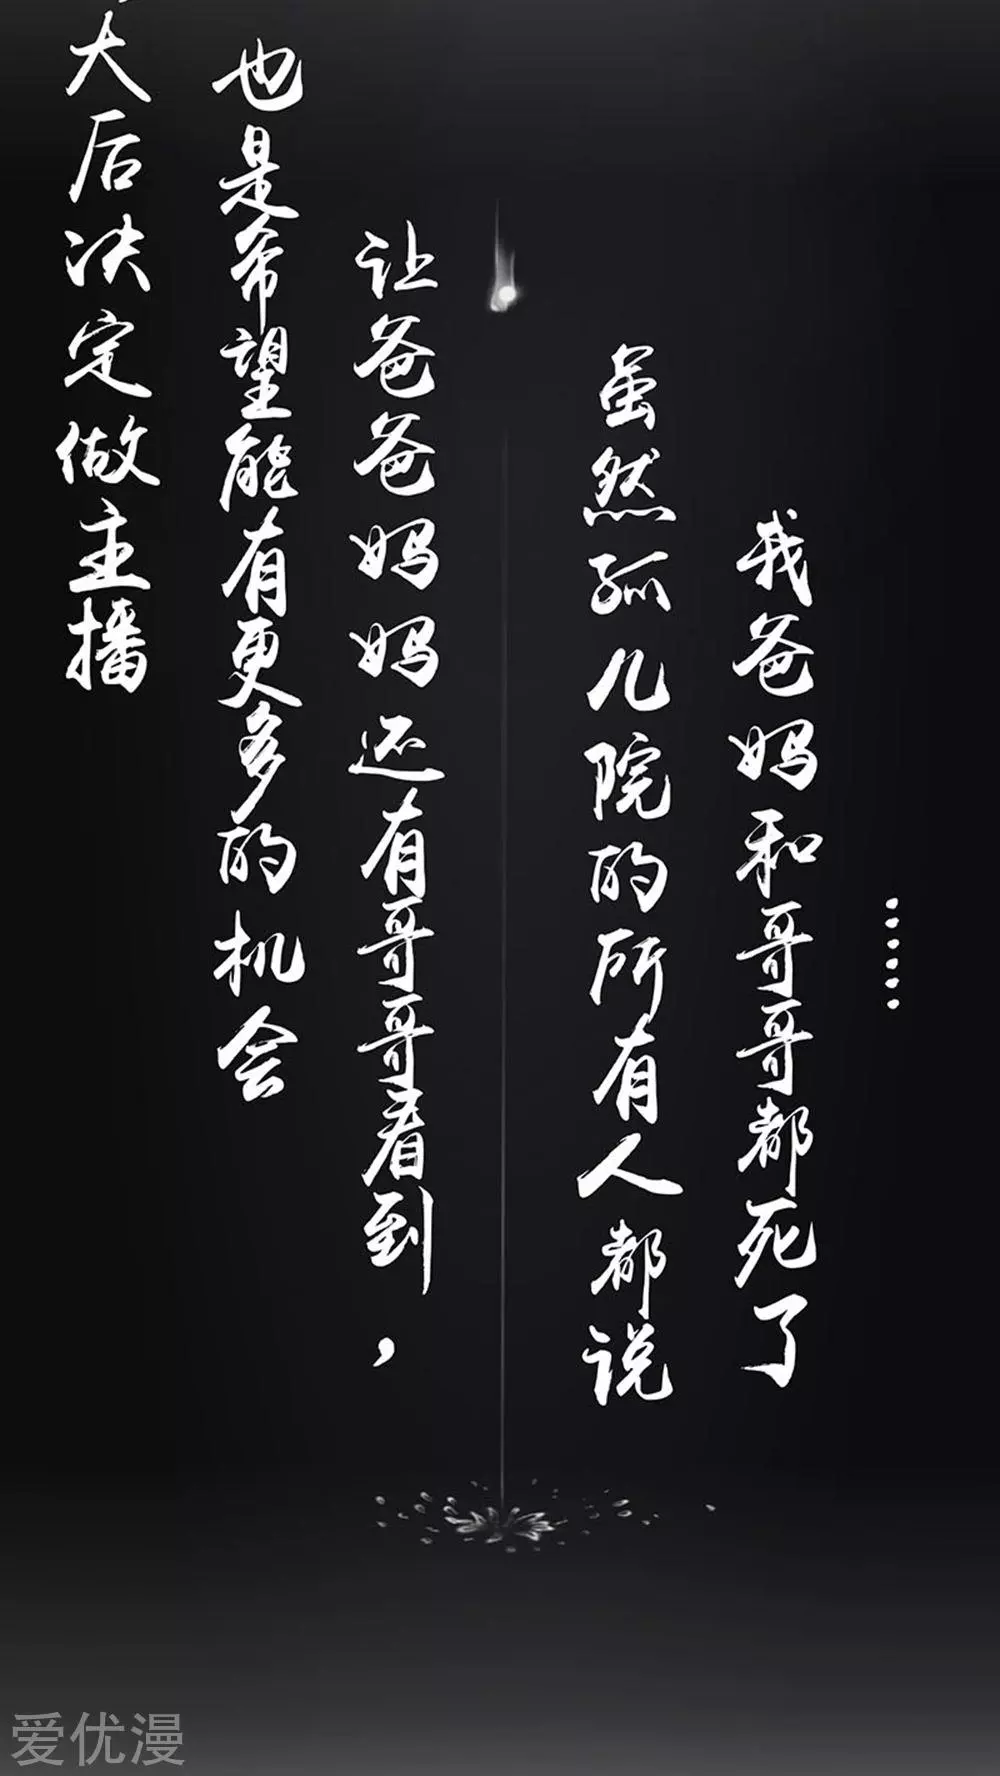 大后决定做主播
也是希望能有更多的机会
让爸爸妈妈还有哥哥看到，
虽然孤儿院的所有人都说
我爸妈和哥哥都死了
……
爱优漫